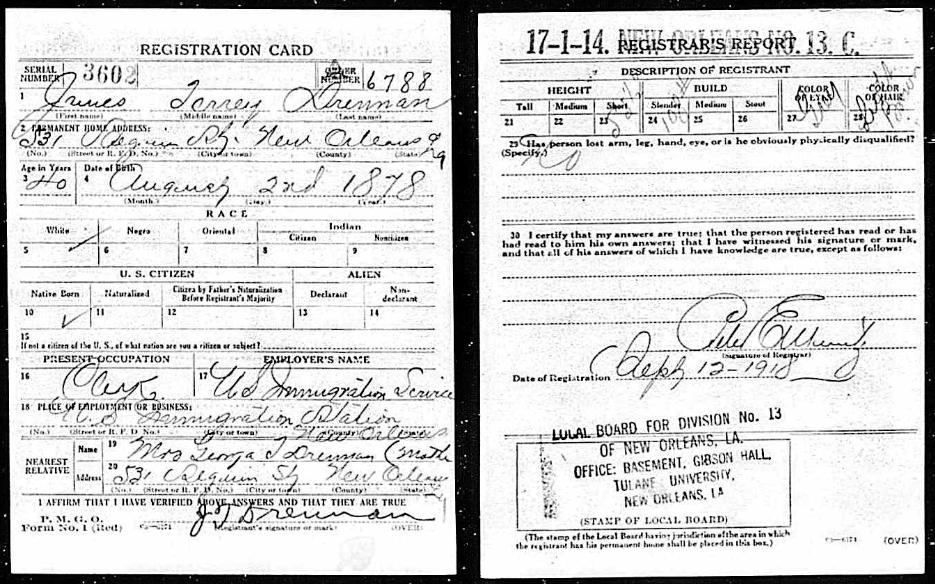 REGISTRATION CARD
SERIAL NUMBER 3602 ORDER NUMBER 6788
1 James Torrey Drennan
(First name) (Middle name) (Last name)
2 PERMANENT HOME ADDRESS:
531 St. New Orleans La
(No.) (Street or R. F. D. No.) (City or town) (County) (State)
Age in Years Date of Birth
3 40 4 August 2nd 1878
(Month.) (Day.) (Year.)
RACE
White Negro Oriental Indian
Citizen Noncitizen
5 ✓ 6 7 8 9
U. S. CITIZEN ALIEN
Native Born Naturalized Citizen by Father's Naturalization Before Registrant's Majority Declarant Non-declarant
10 ✓ 11 12 13 14
15
If not a citizen of the U. S., of what nation are you a citizen or subject?
PRESENT OCCUPATION EMPLOYER'S NAME
16 Clerk 17 U S Immigration Service
18 PLACE OF EMPLOYMENT OR BUSINESS:
U. S Immigration Station New Orleans
(No.) (Street or R. F. D. No.) (City or town) (County) (State)
NEAREST RELATIVE
Name 19 Mrs Georgia T Drennan (Mother
Address 20 531 St New Orleans
(No.) (Street or R. F. D. No.) (City or town) (County) (State)
I AFFIRM THAT I HAVE VERIFIED ABOVE ANSWERS AND THAT THEY ARE TRUE
P. M. G. O.
Form No. 1 (Red) J T Drennan
(Registrant's signature or mark) (OVER)
17-1-14. NEW ORLEANS NO. 13. C.
REGISTRAR'S REPORT
DESCRIPTION OF REGISTRANT
HEIGHT BUILD COLOR OF EYES COLOR OF HAIR
Tall Medium Short Slender Medium Stout
21 22 23 24 25 26 27 28
29 Has person lost arm, leg, hand, eye, or is he obviously physically disqualified?
(Specify.) no
30 I certify that my answers are true; that the person registered has read or has
had read to him his own answers; that I have witnessed his signature or mark,
and that all of his answers of which I have knowledge are true, except as follows:
(Signature of Registrar)
Date of Registration Sept 12-1918
LOCAL BOARD FOR DIVISION No. 13
OF NEW ORLEANS, LA.
OFFICE: BASEMENT, GIBSON HALL,
TULANE UNIVERSITY,
NEW ORLEANS, LA
(STAMP OF LOCAL BOARD)
(The stamp of the Local Board having jurisdiction of the area in which
the registrant has his permanent home shall be placed in this box.)
(OVER)